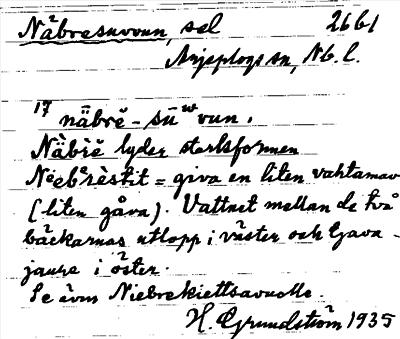 Näbresuvvun, sel 2661
Arjeplogs sn, Nb. l.
17 näbrĕ-sūwvun.
Näbrĕ lyder starksformen
Niebrèstit = giva en liten
(liten gåva). Vattnet mellan de två
bäckarnas utlopp i väster och Gava-
jaure i öster.
Se även
H. Grundström 1935